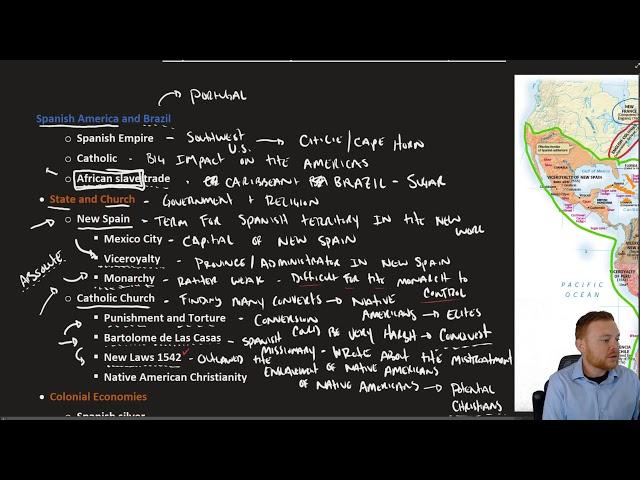 PORTUGAL
Spanish America and Brazil
Spanish Empire - SOUTHWEST U.S. → CHILE/CAPE HORN
Catholic - BIG IMPACT ON THE AMERICAS
African slave trade - CARIBBEAN BRAZIL - SUGAR
State and Church - GOVERNMENT + RELIGION
New Spain - TERM FOR SPANISH TERRITORY IN THE NEW
WORL
Mexico City - CAPITAL OF NEW SPAIN
Viceroyalty - PROVINCE/ADMINISTRATOR IN NEW SPAIN
ABSOLUTE
Monarchy - RATHER WEAK - DIFFICULT FOR THE MONARCH TO
CONTROL
Catholic Church - FINDING MANY CONVERTS → NATIVE
Punishment and Torture - CONVERSION AMERICANS → ELITES
Bartolome de Las Casas - SPANISH COULD BE VERY HARSH → CONQUEST
MISSIONARY - WROTE ABOUT THE MISTREATMENT
New Laws 1542 - OUTLAWED THE
ENSLAVEMENT OF NATIVE AMERICANS
Native American Christianity OF NATIVE AMERICANS → POTENTIAL
CHRISTIANS
Colonial Economies
Spanish silver
NEW FRANCE
Gulf of Mexico
VICEROYALTY OF NEW SPAIN
PACIFIC OCEAN